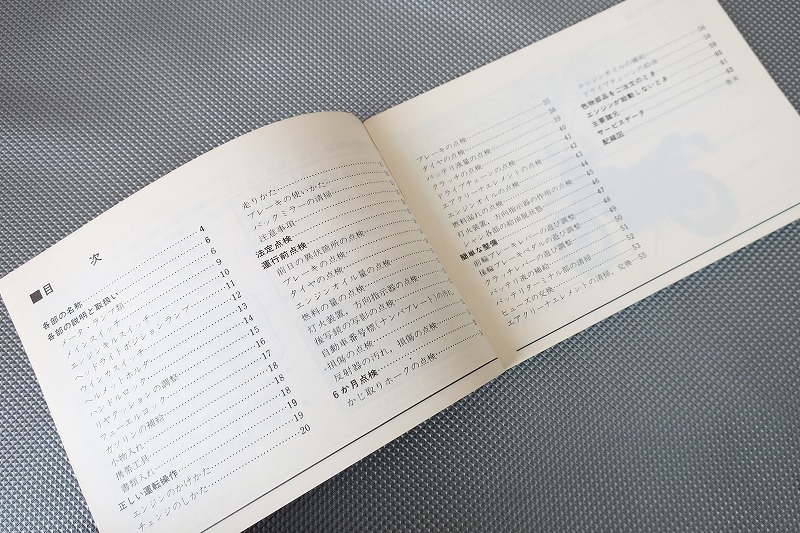 ■目 次
各部の名称 4
各部の説明と取扱い 6
メータ、ランプ類 6
メインスイッチ 9
エンジンキルスイッチ 10
ヘッドライトポジションランプ 11
ウインカスイッチ 12
ヘルメットホルダ 13
ハンドルロック 14
リヤクッションの調整 15
フューエルコック 16
ガソリンの補給 17
小物入れ 18
携帯工具 18
書類入れ 18
正しい運転操作 19
エンジンのかけかた 19
チェンジのしかた 20
走りかた
ブレーキの使いかた
バックミラーの清掃
注意事項
法定点検
運行前点検
前日の異状箇所の点検
ブレーキの点検
タイヤの点検
エンジンオイル量の点検
燃料の量の点検
灯火装置、方向指示器の点検
後写鏡の写影の点検
自動車番号標(ナンバプレート)の汚れ
、損傷の点検
反射器の汚れ、損傷の点検
6か月点検
かじ取りホークの点検
ブレーキの点検 35
タイヤの点検 38
バッテリ液量の点検 39
クラッチの点検 40
ドライブチェーンの点検 41
エアクリーナエレメントの点検 42
エンジンオイルの点検 43
燃料漏れの点検 44
灯火装置、方向指示器の作用の点検 45
シャシ各部の給油脂状態 46
簡単な整備 47
前輪ブレーキレバーの遊び調整 48
後輪ブレーキペダルの遊び調整 49
クラッチレバーの遊び調整 50
バッテリ液の補給 51
バッテリターミナル部の清掃 52
ヒューズの交換 53
エアクリーナエレメントの清掃、交換 55
エンジンオイルの補給 56
ドライブチェーンの給油 58
色物部品をご注文のとき 59
エンジンが始動しないとき 60
主要諸元 61
サービスデータ 63
配線図 巻末